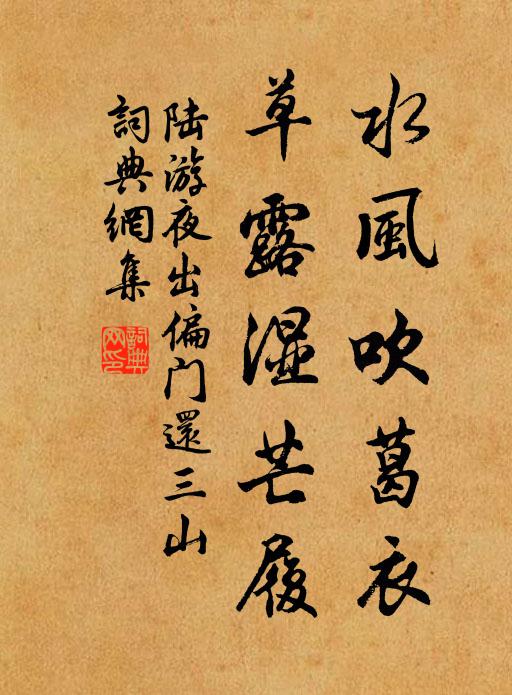 水風吹葛衣
草露湿芒履
陆游夜出偏门還三山
詞典網集
詞典网印